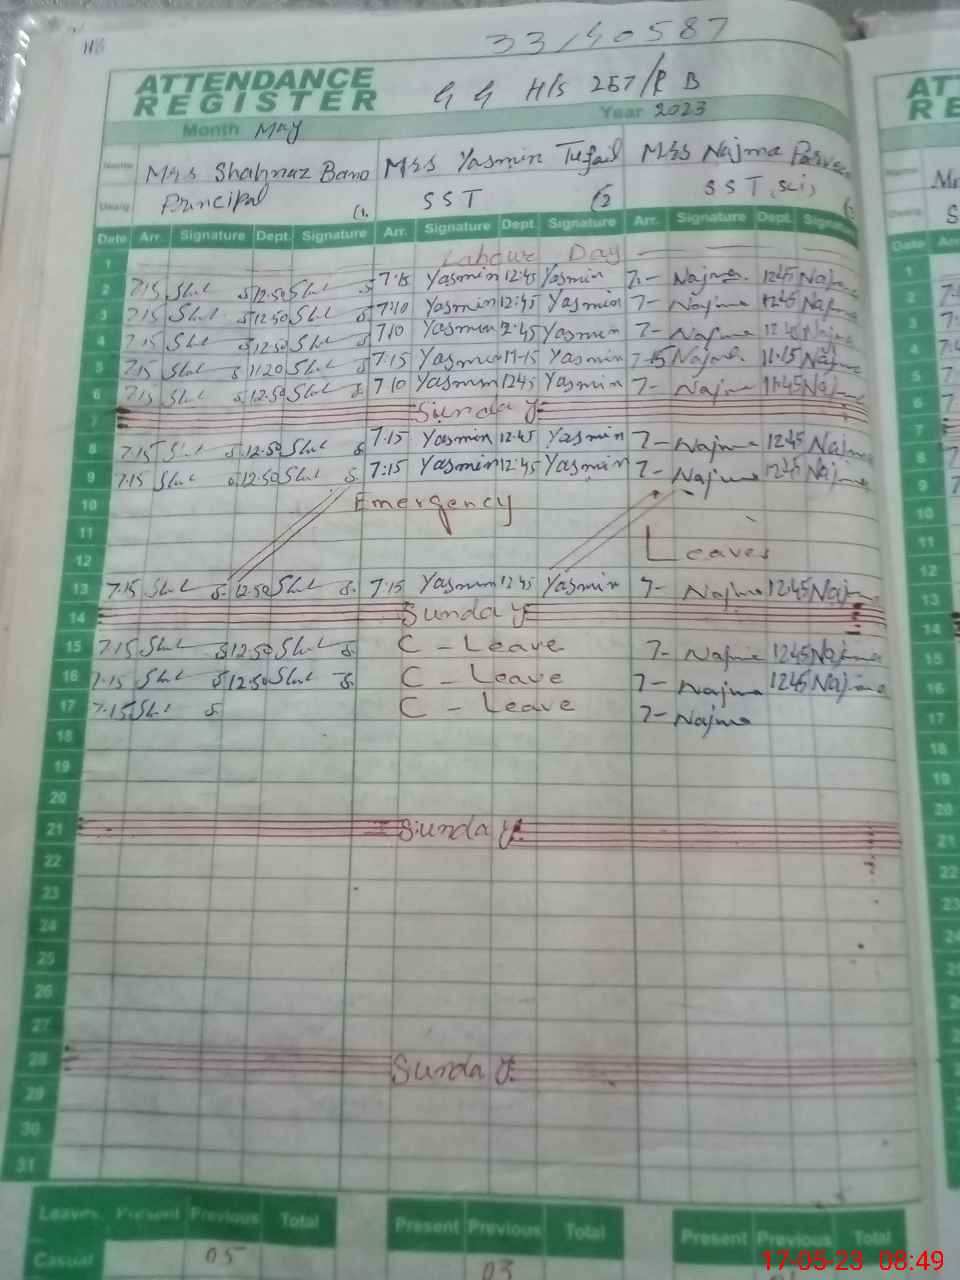 118
33/40587
ATTENDANCE
REGISTER
G G H/s 257/R B
Month May
Year 2023
Name Mrs Shahnaz Bano Mrs Yasmin Tufail Mrs Najma Parveen
Desig Principal (1. SST (2 SST, Sci,
Date Arr. Signature Dept. Signature Arr. Signature Dept. Signature Arr. Signature Dept. Signature
1 Labour Day
2 7.15 12.50 7.15 Yasmin 12:45 Yasmin 7- Najma 12.45 Najma
3 7.15 12.50 7:10 Yasmin 12:45 Yasmin 7- Najma 12.45 Najma
4 7.15 12.50 7:10 Yasmin 12.45 Yasmin 7- Najma 12.45 Najma
5 7.15 11.20 7.15 Yasmin 11-15 Yasmin 7-15 Najma 11.15 Najma
6 7.15 12.50 7.10 Yasmin 1245 Yasmin 7- Najma 11.45 Najma
7 Sunday
8 7.15 12.50 7.15 Yasmin 12:45 Yasmin 7- Najma 12.45 Najma
9 7.15 12.50 7:15 Yasmin 12:45 Yasmin 7- Najma 12.45 Najma
10 Emergency
11 Leaves
12
13 7.15 12.50 7:15 Yasmin 12.45 Yasmin 7- Najma 12.45 Najma
14 Sunday
15 7.15 12.50 C - Leave 7- Najma 12.45 Najma
16 7.15 12.50 C - Leave 7- Najma 12.45 Najma
17 7.15 C - Leave 7- Najma
18
19
20
21 Sunday
22
23
24
25
26
27
28 Sunday
29
30
31
Leaves Present Previous Total Present Previous Total Present Previous
Casual 05 03
17-05-23 08:49